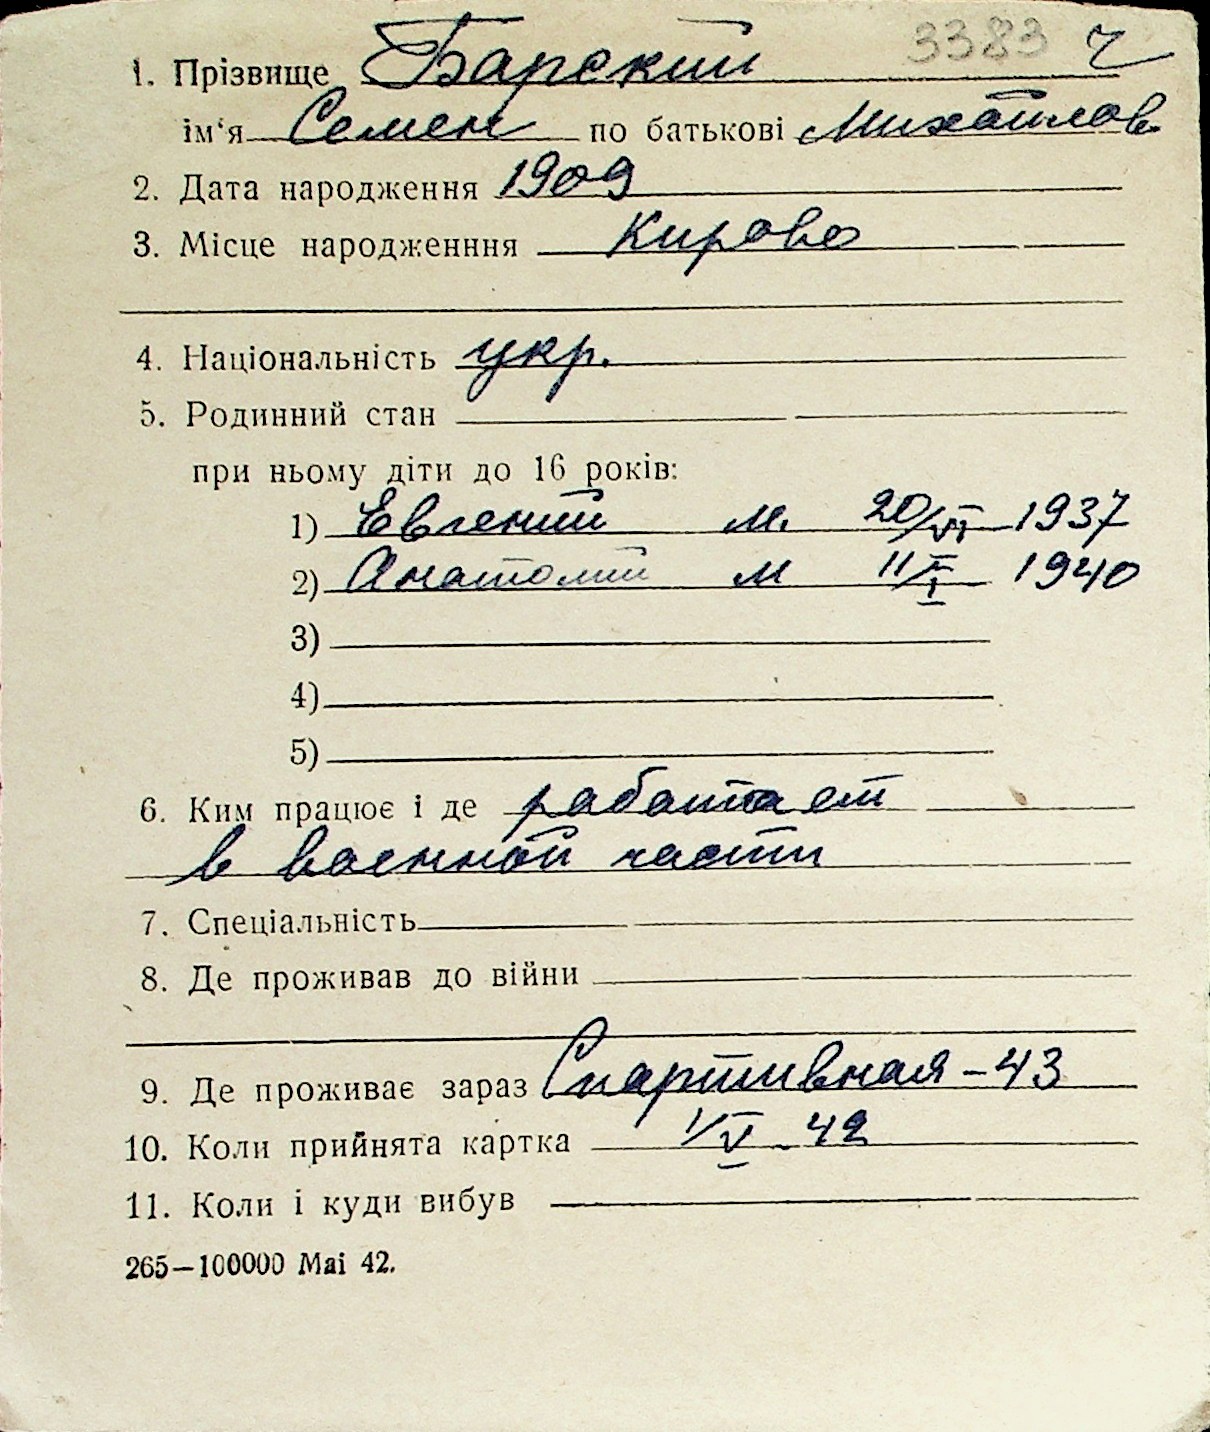 3383 ч
1. Прізвище Барский
ім‘я Семен по батькові Михайлов.
2. Дата народження 1909
3. Місце народженння Кирово
4. Національність укр.
5. Родинний стан
при ньому діти до 16 років:
1) Евгений м. 20/VI 1937
2) Анатолий м 11/I 1940
3)
4)
5)
6. Ким працює і де работает
в военной части
7. Спеціальність
8. Де проживав до війни
9. Де проживає зараз Спортивная-43
10. Коли прийнята картка 1/V-42
11. Коли і куди вибув
265—100000 Mai 42.